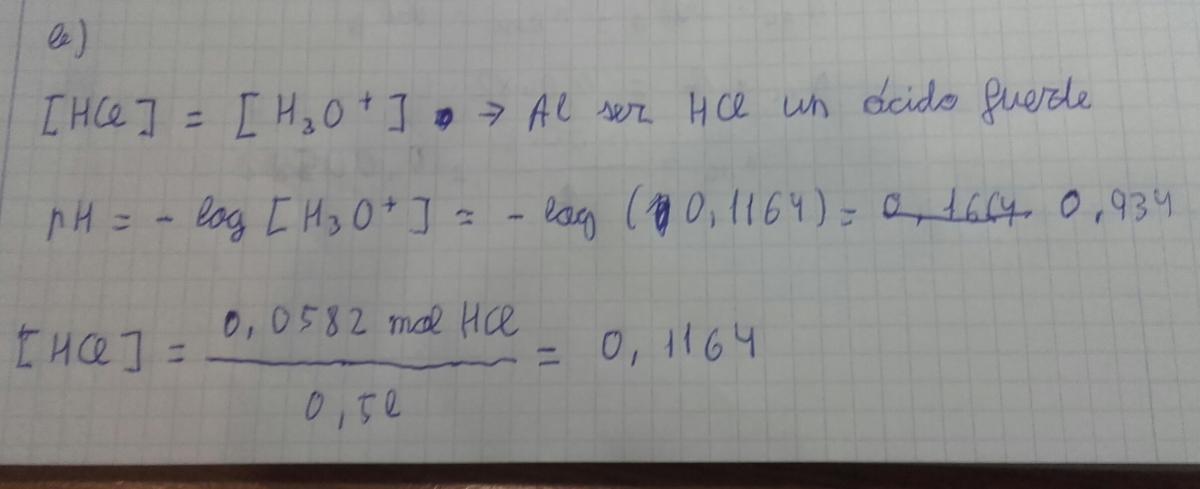 a)
[HCl] = [H₃O⁺] → Al ser HCl un ácido fuerte
pH = - log [H₃O⁺] = - log (0,1164) = 0,1664 0,934
[HCl] = 0,0582 mol HCl / 0,5l = 0,1164